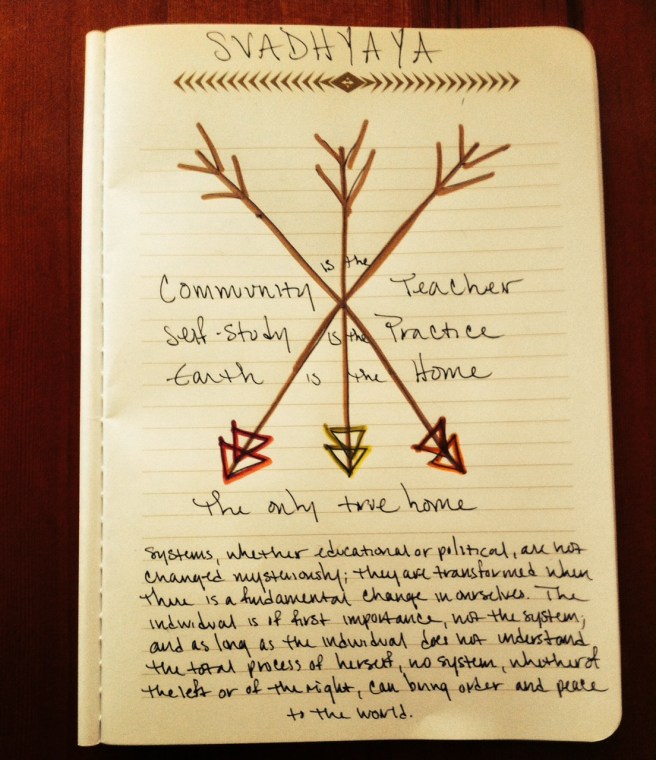 SVADHYAYA
is the
Community Teacher
Self-Study is the Practice
Earth is the Home
The only true home
Systems, whether educational or political, are not
changed mysteriously; they are transformed when
there is a fundamental change in ourselves. The
individual is of first importance, not the system;
and as long as the individual does not understand
the total process of herself, no system, whether of
the left or of the right, can bring order and peace
to the world.